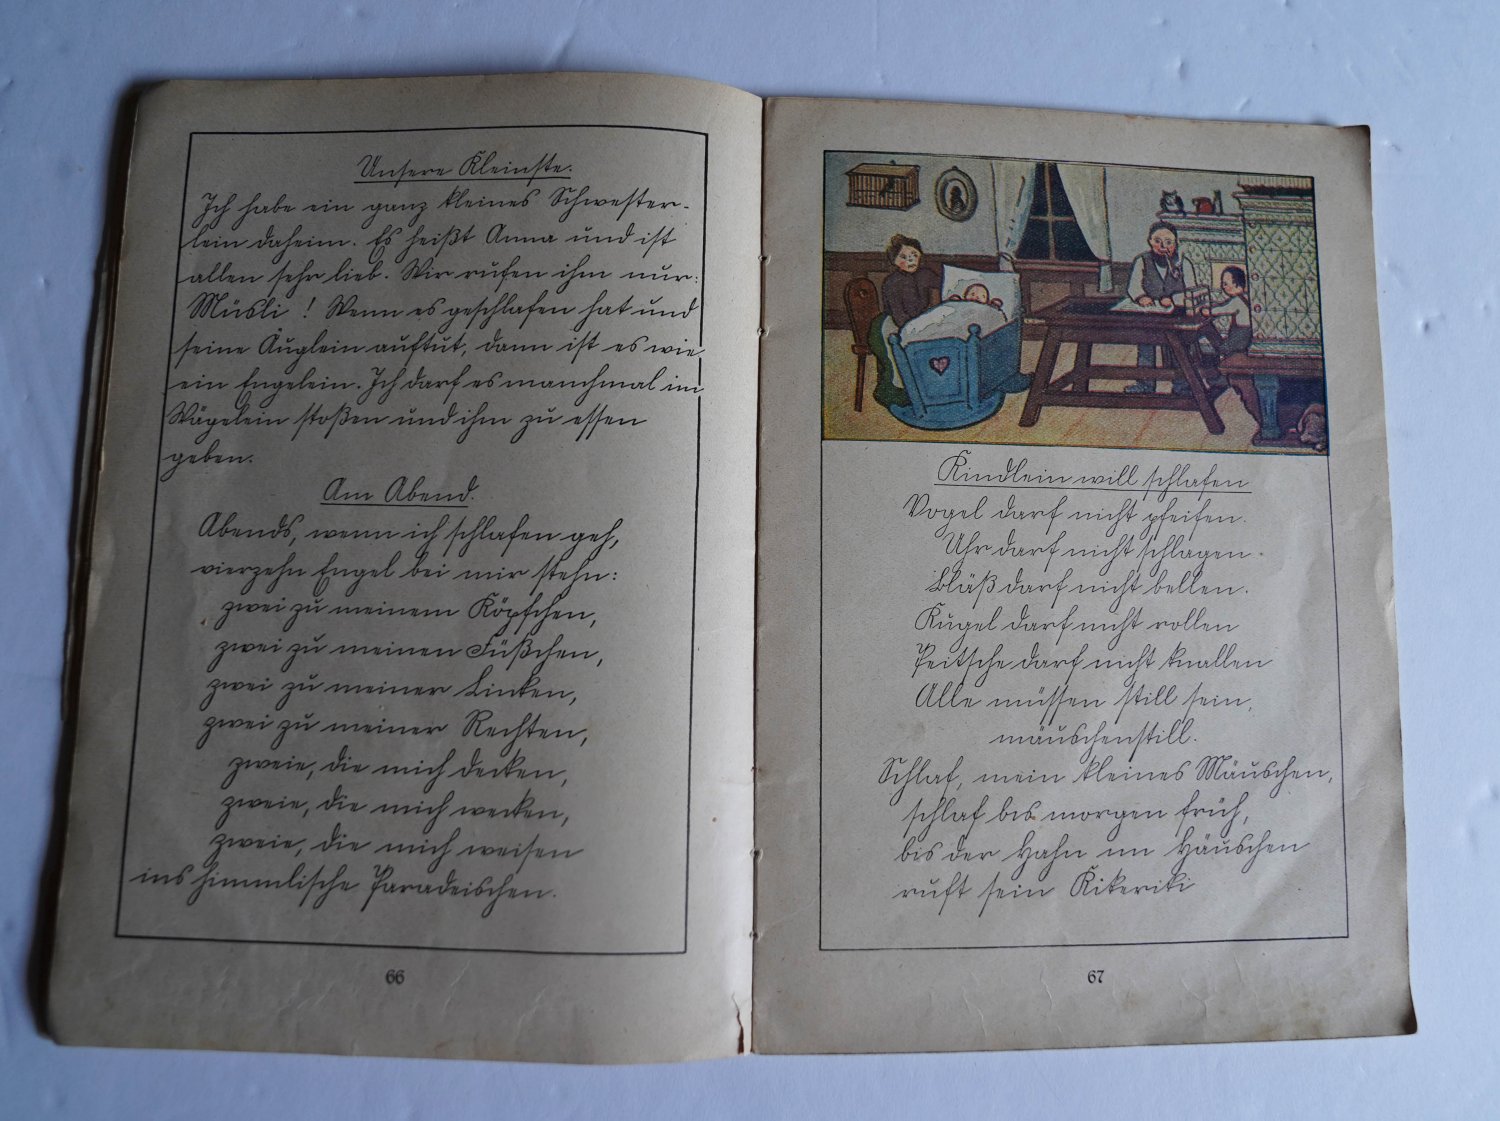 Unsere Kleinste.
Ich habe ein ganz kleines Schwester-
lein daheim. Es heißt Anna und ist
allen sehr lieb. Wir rufen ihm nur:
Müsli! Wenn es geschlafen hat und
seine Äuglein auftut, dann ist es wie
ein Engelein. Ich darf es manchmal im
Wägelein stoßen und ihm zu essen
geben.
Am Abend.
Abends, wenn ich schlafen geh,
vierzehn Engel bei mir stehn:
zwei zu meinem Köpfchen,
zwei zu meinen Füßchen,
zwei zu meiner Linken,
zwei zu meiner Rechten,
zweie, die mich decken,
zweie, die mich wecken,
zweie, die mich weisen
ins himmlische Paradeischen.
66
Kindlein will schlafen
Vogel darf nicht pfeifen.
Uhr darf nicht schlagen.
Bläß darf nicht bellen.
Kugel darf nicht rollen
Peitsche darf nicht knallen
Alle müssen still sein,
mäuschenstill.
Schlaf, mein kleines Mäuschen,
schlaf bis morgen früh,
bis der Hahn im Häuschen
ruft sein Kikeriki
67